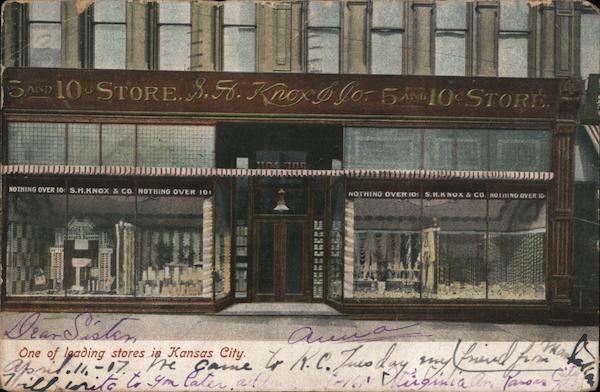 5 AND 10¢ STORE. S. H. Knox & Co. 5 AND 10¢ STORE.
NOTHING OVER 10¢ S.H. KNOX & CO. NOTHING OVER 10¢
NOTHING OVER 10¢ S.H. KNOX & CO. NOTHING OVER 10¢
Dear Sister
One of leading stores in Kansas City.
April. 11.-07. We came to K.C. Tuesday my friend from
Will write to you later. Virginia Av. Kansas City